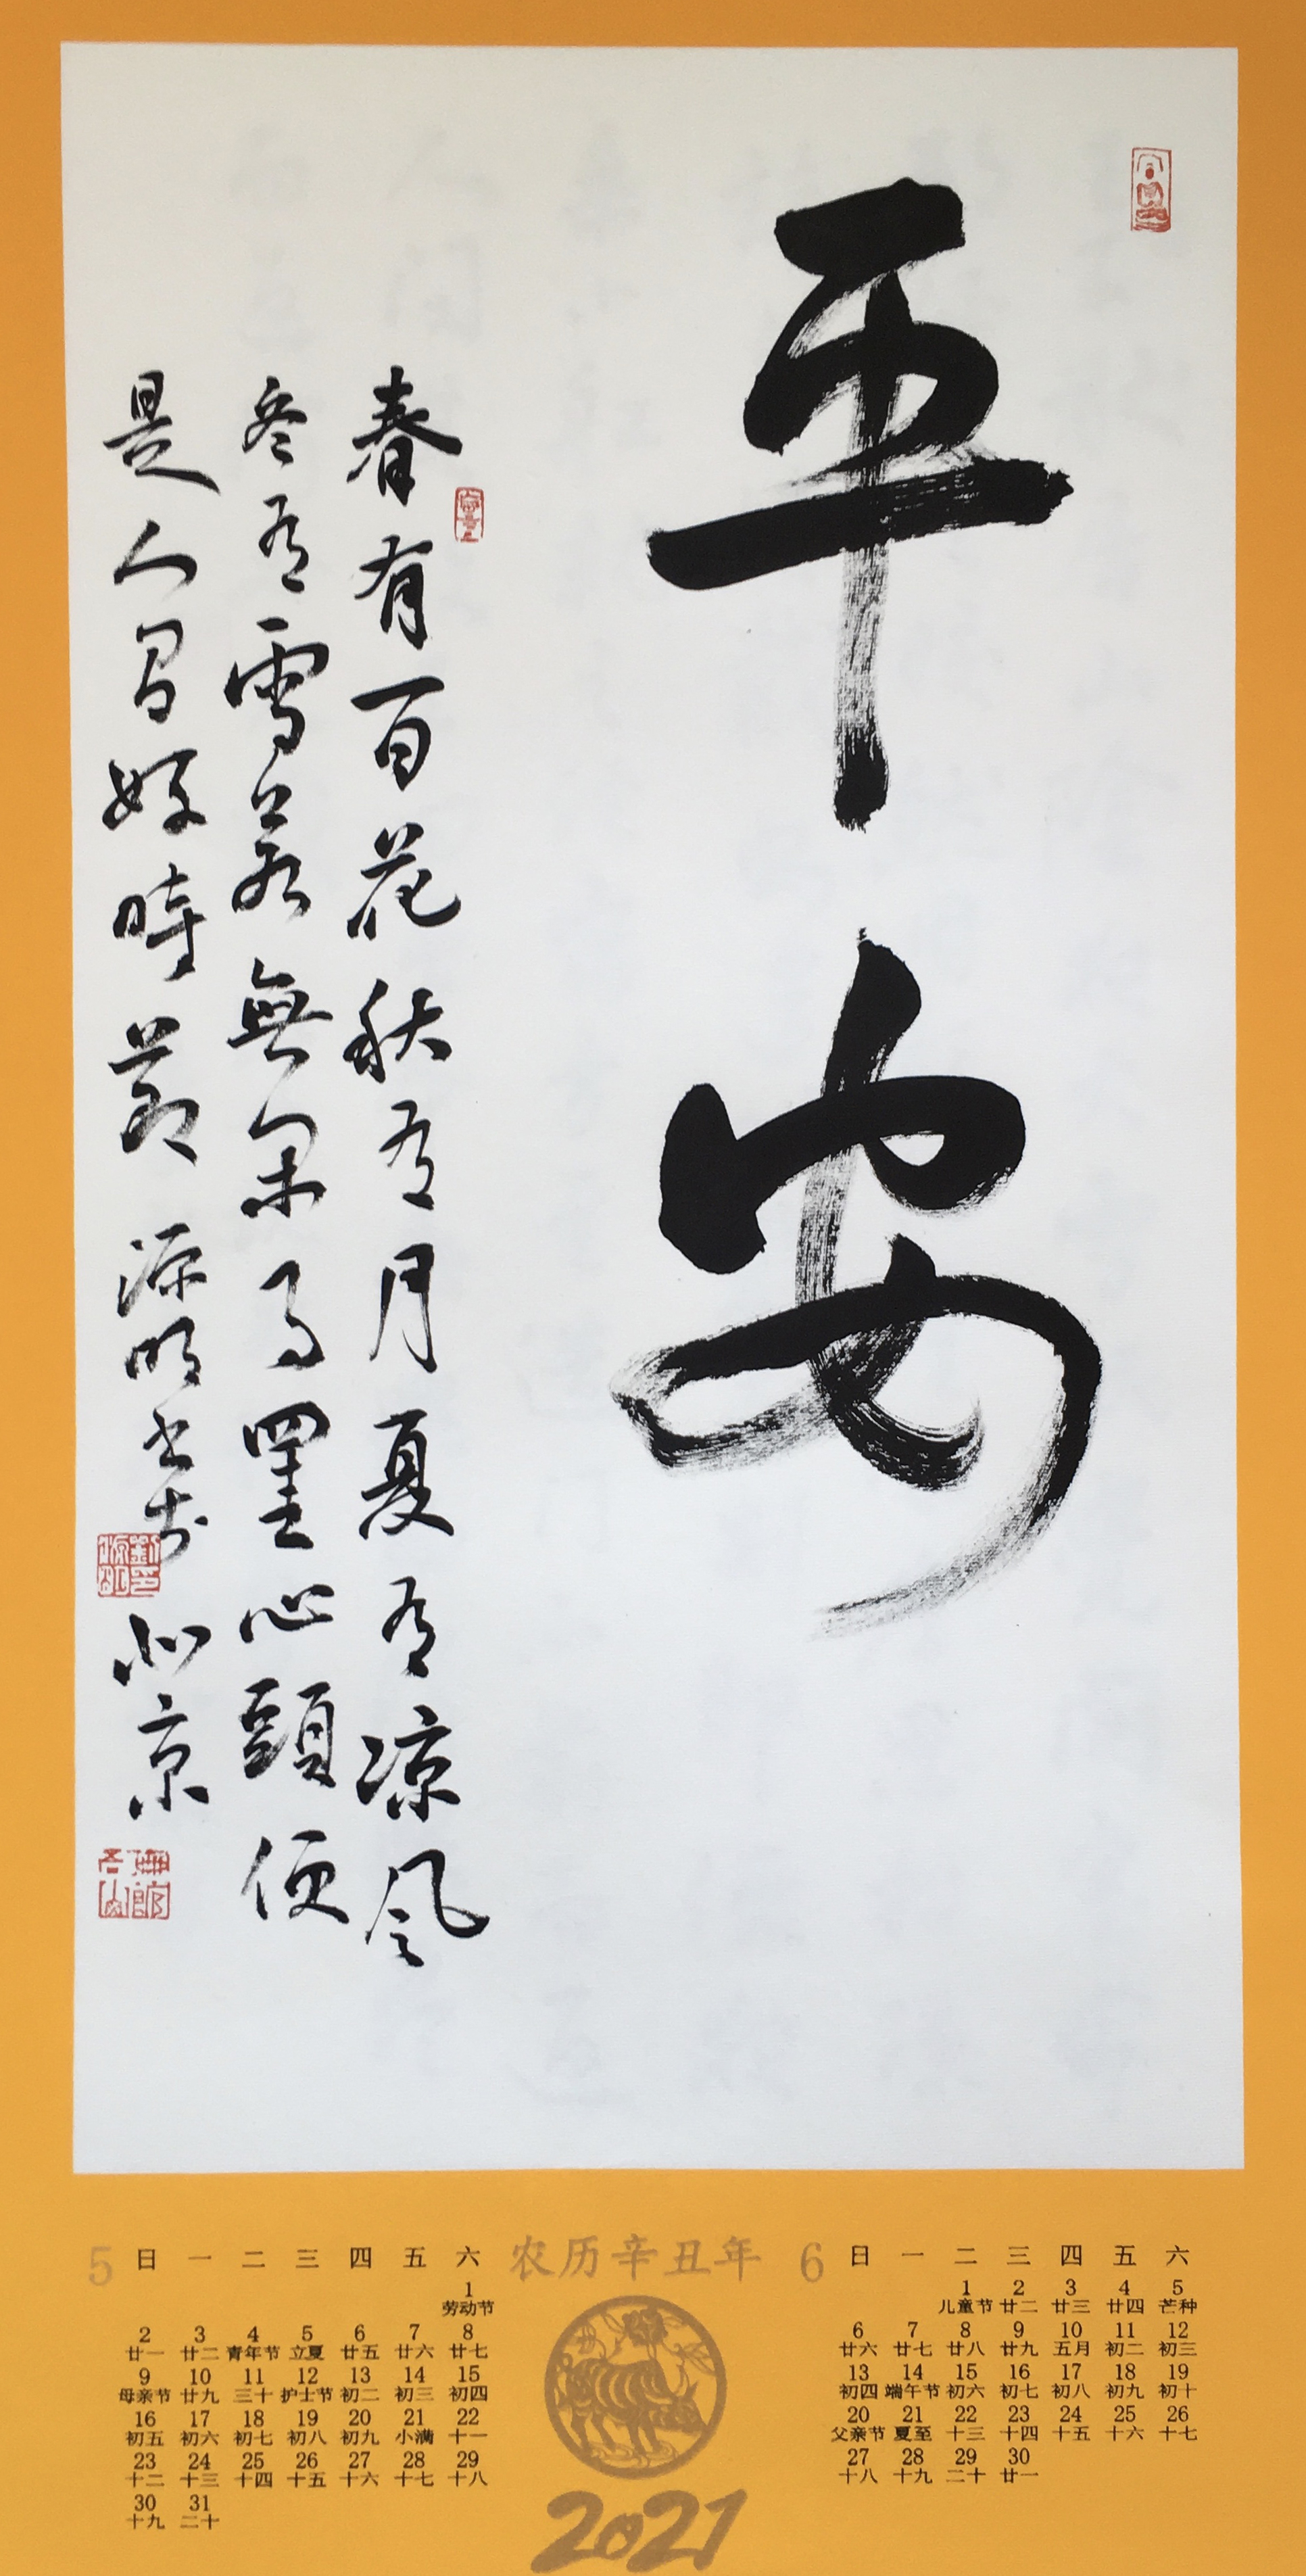 平安
春有百花秋有月夏有凉風
冬有雪若無閑事罣心頭便
是人間好時節 源明書於北京
农历辛丑年
5
日 一 二 三 四 五 六
1
劳动节
2 3 4 5 6 7 8
廿一 廿二 青年节 立夏 廿五 廿六 廿七
9 10 11 12 13 14 15
母亲节 廿九 三十 护士节 初二 初三 初四
16 17 18 19 20 21 22
初五 初六 初七 初八 初九 小满 十一
23 24 25 26 27 28 29
十二 十三 十四 十五 十六 十七 十八
30 31
十九 二十
2021
6
日 一 二 三 四 五 六
1 2 3 4 5
儿童节 廿二 廿三 廿四 芒种
6 7 8 9 10 11 12
廿六 廿七 廿八 廿九 五月 初二 初三
13 14 15 16 17 18 19
初四 端午节 初六 初七 初八 初九 初十
20 21 22 23 24 25 26
父亲节 夏至 十三 十四 十五 十六 十七
27 28 29 30
十八 十九 二十 廿一